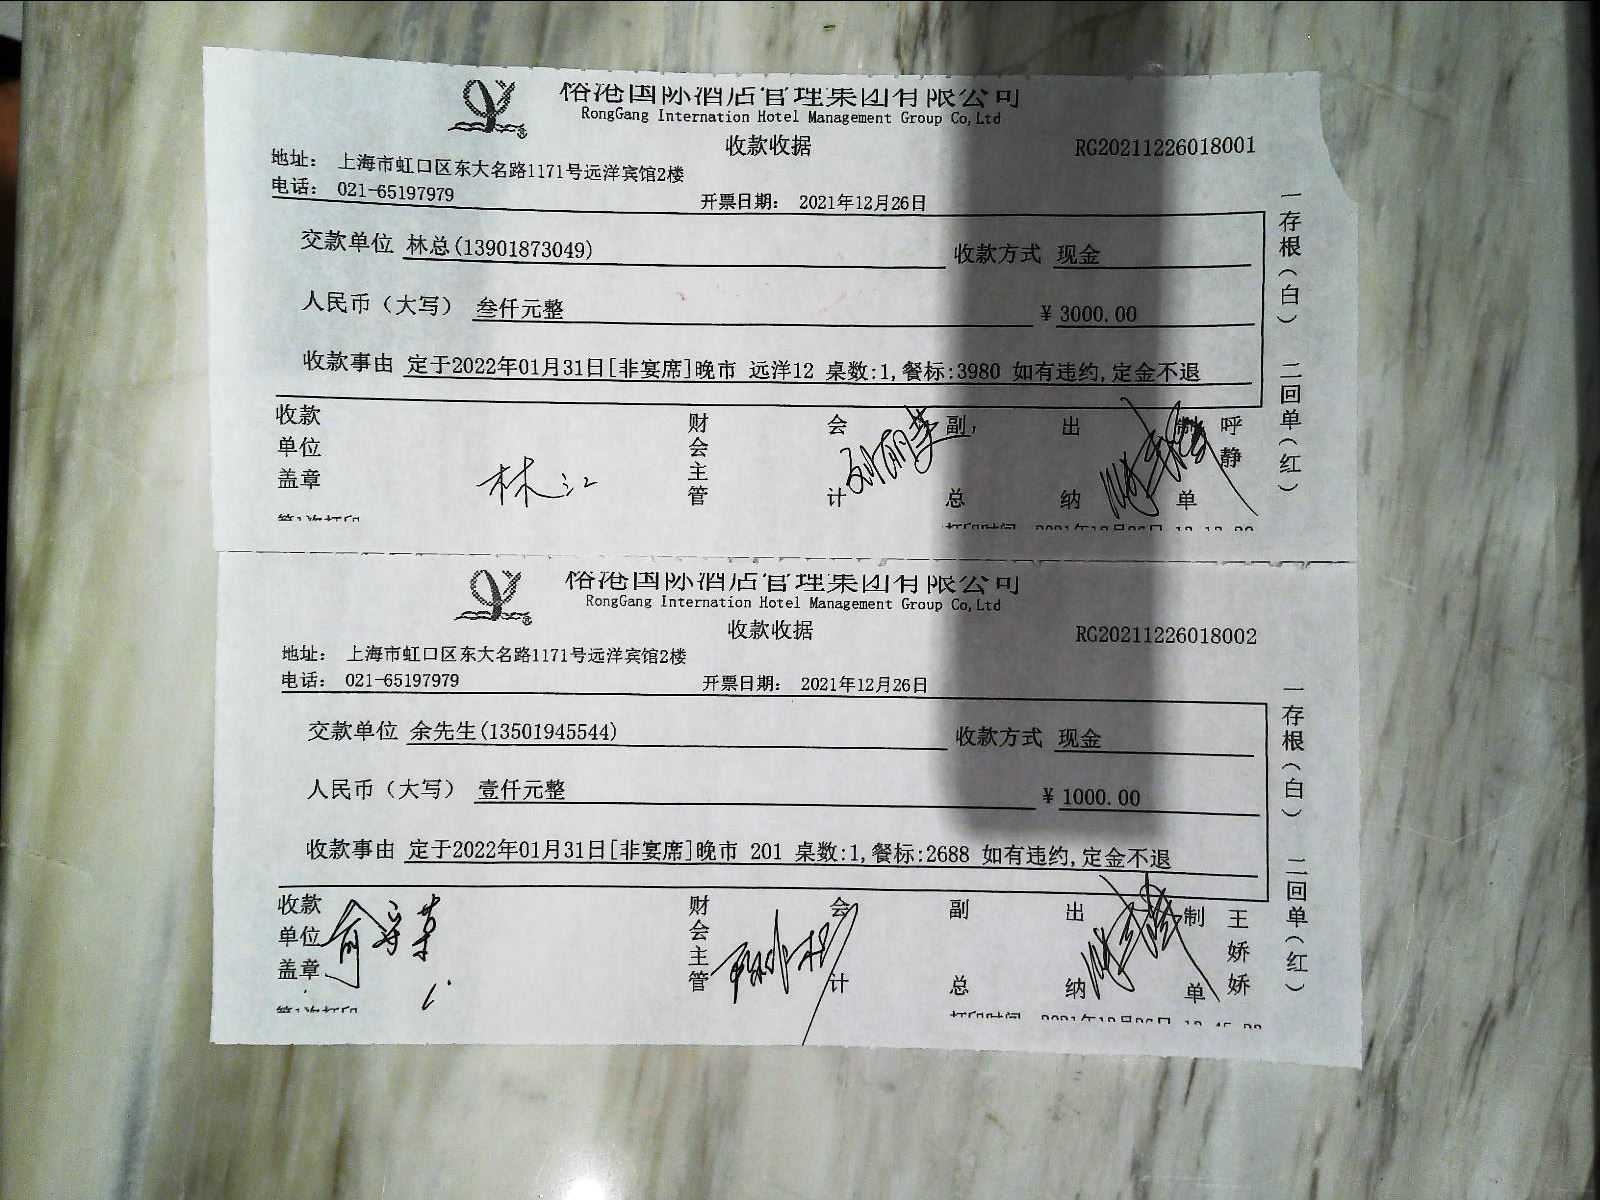 榕港国际酒店管理集团有限公司
RongGang Internation Hotel Management Group Co,Ltd
收款收据
RG20211226018001
地址： 上海市虹口区东大名路1171号远洋宾馆2楼
电话： 021-65197979
开票日期： 2021年12月26日
交款单位 林总(13901873049) 收款方式 现金
人民币（大写） 叁仟元整 ¥ 3000.00
收款事由 定于2022年01月31日[非宴席]晚市 远洋12 桌数:1,餐标:3980 如有违约,定金不退
收款单位盖章 林江
财会主管
会计
副总
出纳
制单 呼静
一存根（白） 二回单（红）
第1次打印
打印时间 2021年12月26日
榕港国际酒店管理集团有限公司
RongGang Internation Hotel Management Group Co,Ltd
收款收据
RG20211226018002
地址： 上海市虹口区东大名路1171号远洋宾馆2楼
电话： 021-65197979
开票日期： 2021年12月26日
交款单位 余先生(13501945544) 收款方式 现金
人民币（大写） 壹仟元整 ¥ 1000.00
收款事由 定于2022年01月31日[非宴席]晚市 201 桌数:1,餐标:2688 如有违约,定金不退
收款单位盖章
财会主管
会计
副总
出纳
制单 王娇娇
一存根（白） 二回单（红）
第1次打印
打印时间 2021年12月26日